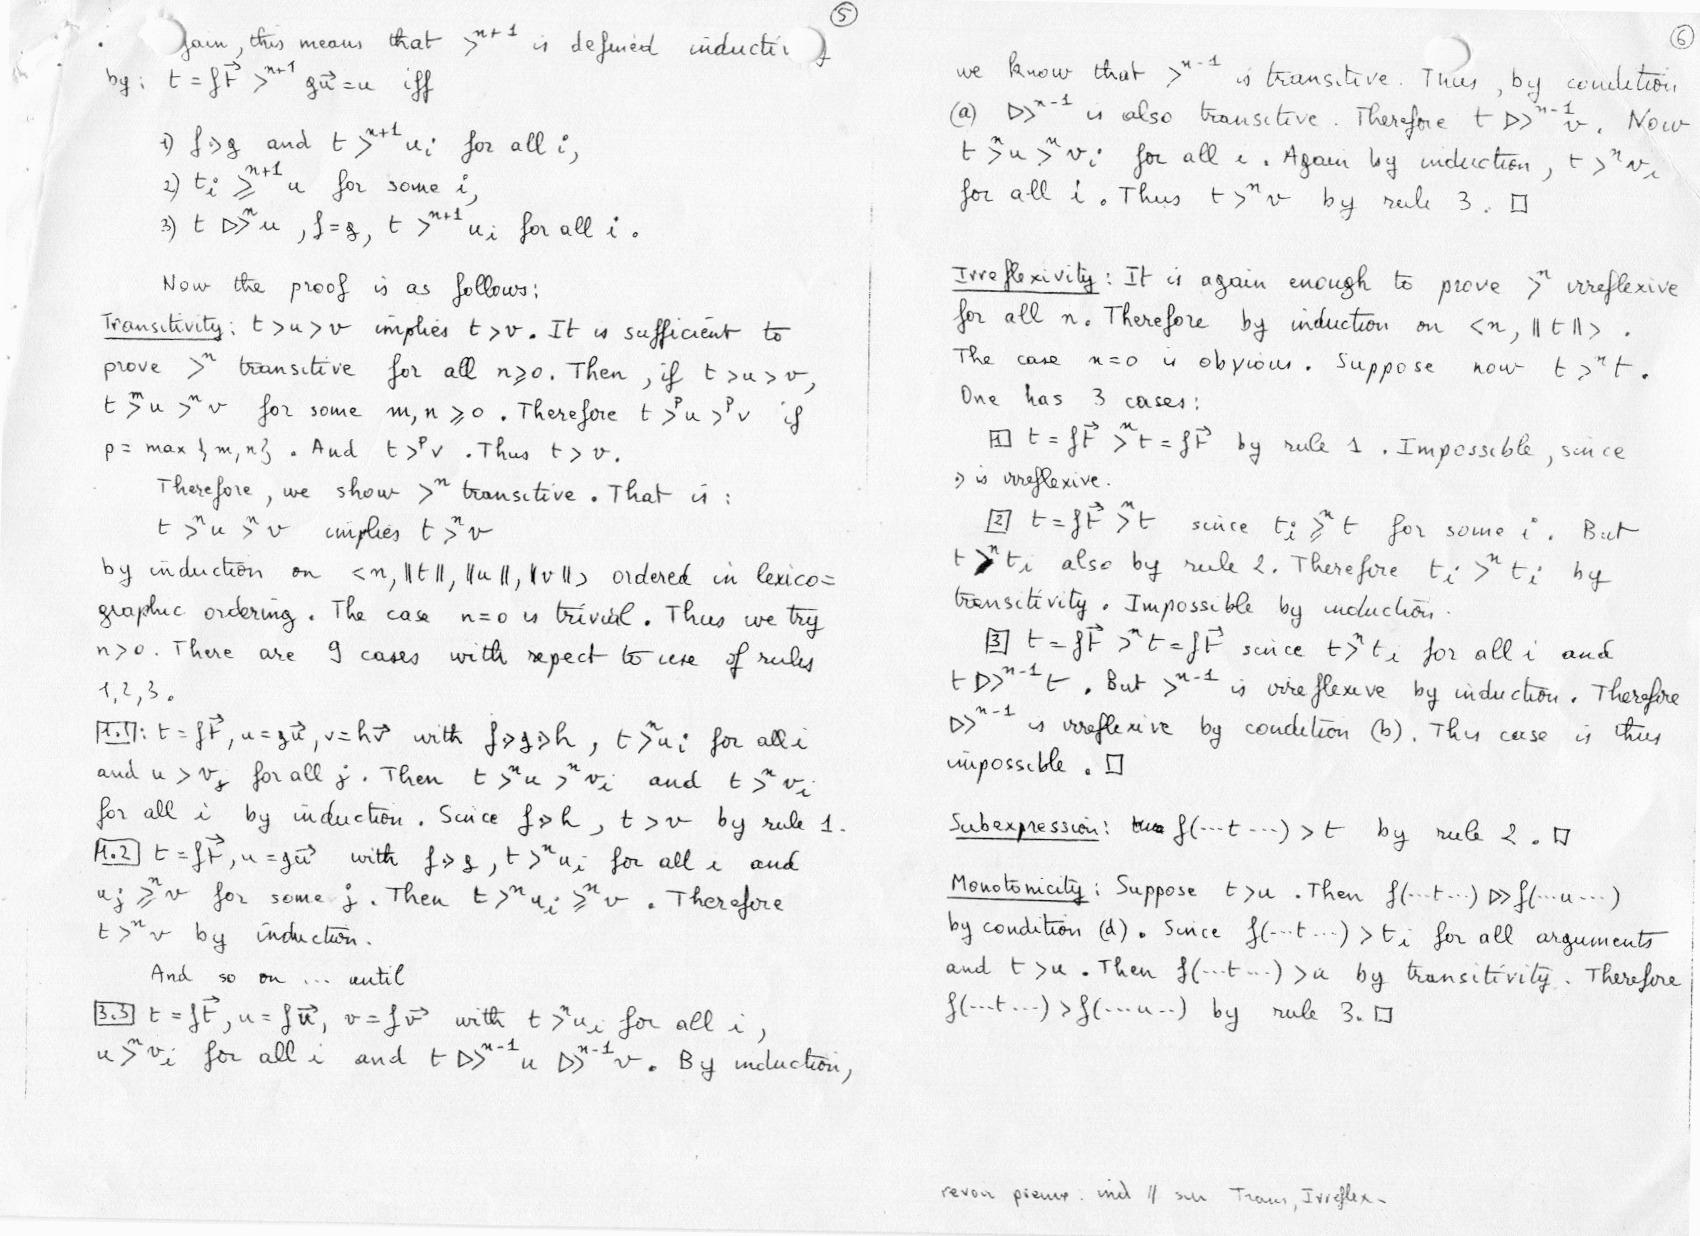 ⑤
• gain, this means that >ⁿ⁺¹ is defined inducti y
by: t = f t⃗ >ⁿ⁺¹ g u⃗ = u iff
1) f ⋗ g and t >ⁿ⁺¹ uᵢ for all i,
2) tᵢ ≥ⁿ⁺¹ u for some i,
3) t ▷>ⁿ u, f = g, t >ⁿ⁺¹ uᵢ for all i.
Now the proof is as follows:
Transitivity: t > u > v implies t > v. It is sufficient to
prove >ⁿ transitive for all n ≥ 0. Then, if t > u > v,
t >ᵐ u >ⁿ v for some m, n ≥ 0. Therefore t >ᵖ u >ᵖ v if
p = max {m, n}. And t >ᵖ v. Thus t > v.
Therefore, we show >ⁿ transitive. That is:
t >ⁿ u >ⁿ v implies t >ⁿ v
by induction on <n, ‖t‖, ‖u‖, ‖v‖> ordered in lexico=
graphic ordering. The case n=0 is trivial. Thus we try
n>0. There are 9 cases with repect to use of rules
1, 2, 3.
1.1: t = f t⃗, u = g u⃗, v = h v⃗ with f ⋗ g ⋗ h, t >ⁿ uᵢ for all i
and u > vⱼ for all j. Then t >ⁿ u >ⁿ vᵢ and t >ⁿ vᵢ
for all i by induction. Since f ⋗ h, t > v by rule 1.
1.2 t = f t⃗, u = g u⃗ with f ⋗ g, t >ⁿ uᵢ for all i and
uⱼ ≥ⁿ v for some j. Then t >ⁿ uⱼ ≥ⁿ v. Therefore
t >ⁿ v by induction.
And so on ... until
3.3 t = f t⃗, u = f u⃗, v = f v⃗ with t >ⁿ uᵢ for all i,
u >ⁿ vᵢ for all i and t ▷>ⁿ⁻¹ u ▷>ⁿ⁻¹ v. By induction,
⑥
we know that >ⁿ⁻¹ is transitive. Thus, by condition
(a) ▷>ⁿ⁻¹ is also transitive. Therefore t ▷>ⁿ⁻¹ v. Now
t >ⁿ u >ⁿ vᵢ for all i. Again by induction, t >ⁿ vᵢ
for all i. Thus t >ⁿ v by rule 3. □
Irreflexivity: It is again enough to prove >ⁿ irreflexive
for all n. Therefore by induction on <n, ‖t‖>.
The case n=0 is obvious. Suppose now t >ⁿ t.
One has 3 cases:
1 t = f t⃗ >ⁿ t = f t⃗ by rule 1. Impossible, since
⋗ is irreflexive.
2 t = f t⃗ >ⁿ t since tᵢ ≥ⁿ t for some i. But
t >ⁿ tᵢ also by rule 2. Therefore tᵢ >ⁿ tᵢ by
transitivity. Impossible by induction.
3 t = f t⃗ >ⁿ t = f t⃗ since t >ⁿ tᵢ for all i and
t ▷>ⁿ⁻¹ t. But >ⁿ⁻¹ is irreflexive by induction. Therefore
▷>ⁿ⁻¹ is irreflexive by condition (b). This case is thus
impossible. □
Subexpression: f(...t...) > t by rule 2. □
Monotonicity: Suppose t > u. Then f(...t...) ▷> f(...u...)
by condition (d). Since f(...t...) > tᵢ for all arguments
and t > u. Then f(...t...) > u by transitivity. Therefore
f(...t...) > f(...u...) by rule 3. □
revoir preuve: ind // sur Trans, Irreflex.